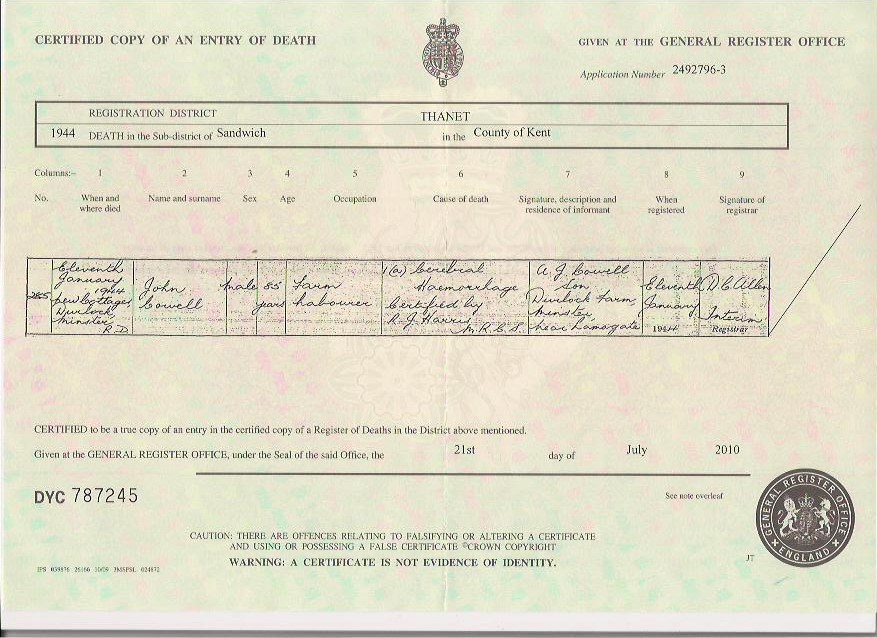 CERTIFIED COPY OF AN ENTRY OF DEATH
GIVEN AT THE GENERAL REGISTER OFFICE
Application Number 2492796-3
REGISTRATION DISTRICT THANET
1944 DEATH in the Sub-district of Sandwich in the County of Kent
Columns:- 1 2 3 4 5 6 7 8 9
No. When and where died Name and surname Sex Age Occupation Cause of death Signature, description and residence of informant When registered Signature of registrar
285
Eleventh
January
1944
New Cottages
Durlock
Minster
R.D
John
Cowell
Male
85
years
Farm
Labourer
1(a) Cerebral
Haemorrhage
Certified by
R. J. Harris
M.R.C.S.
A. J. Cowell
Son
Durlock Farm
Minster
near Ramsgate
Eleventh
January
1944
D. C. Allen
Interim
Registrar
CERTIFIED to be a true copy of an entry in the certified copy of a Register of Deaths in the District above mentioned.
Given at the GENERAL REGISTER OFFICE, under the Seal of the said Office, the 21st day of July 2010
DYC 787245
See note overleaf
CAUTION: THERE ARE OFFENCES RELATING TO FALSIFYING OR ALTERING A CERTIFICATE
AND USING OR POSSESSING A FALSE CERTIFICATE ©CROWN COPYRIGHT
WARNING: A CERTIFICATE IS NOT EVIDENCE OF IDENTITY.
GENERAL REGISTER OFFICE
ENGLAND
JT